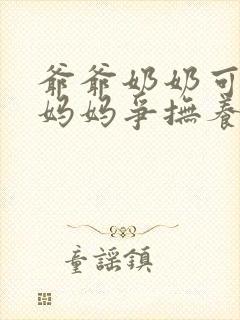 爺爺奶奶可
媽媽爭撫養
童謡鎮